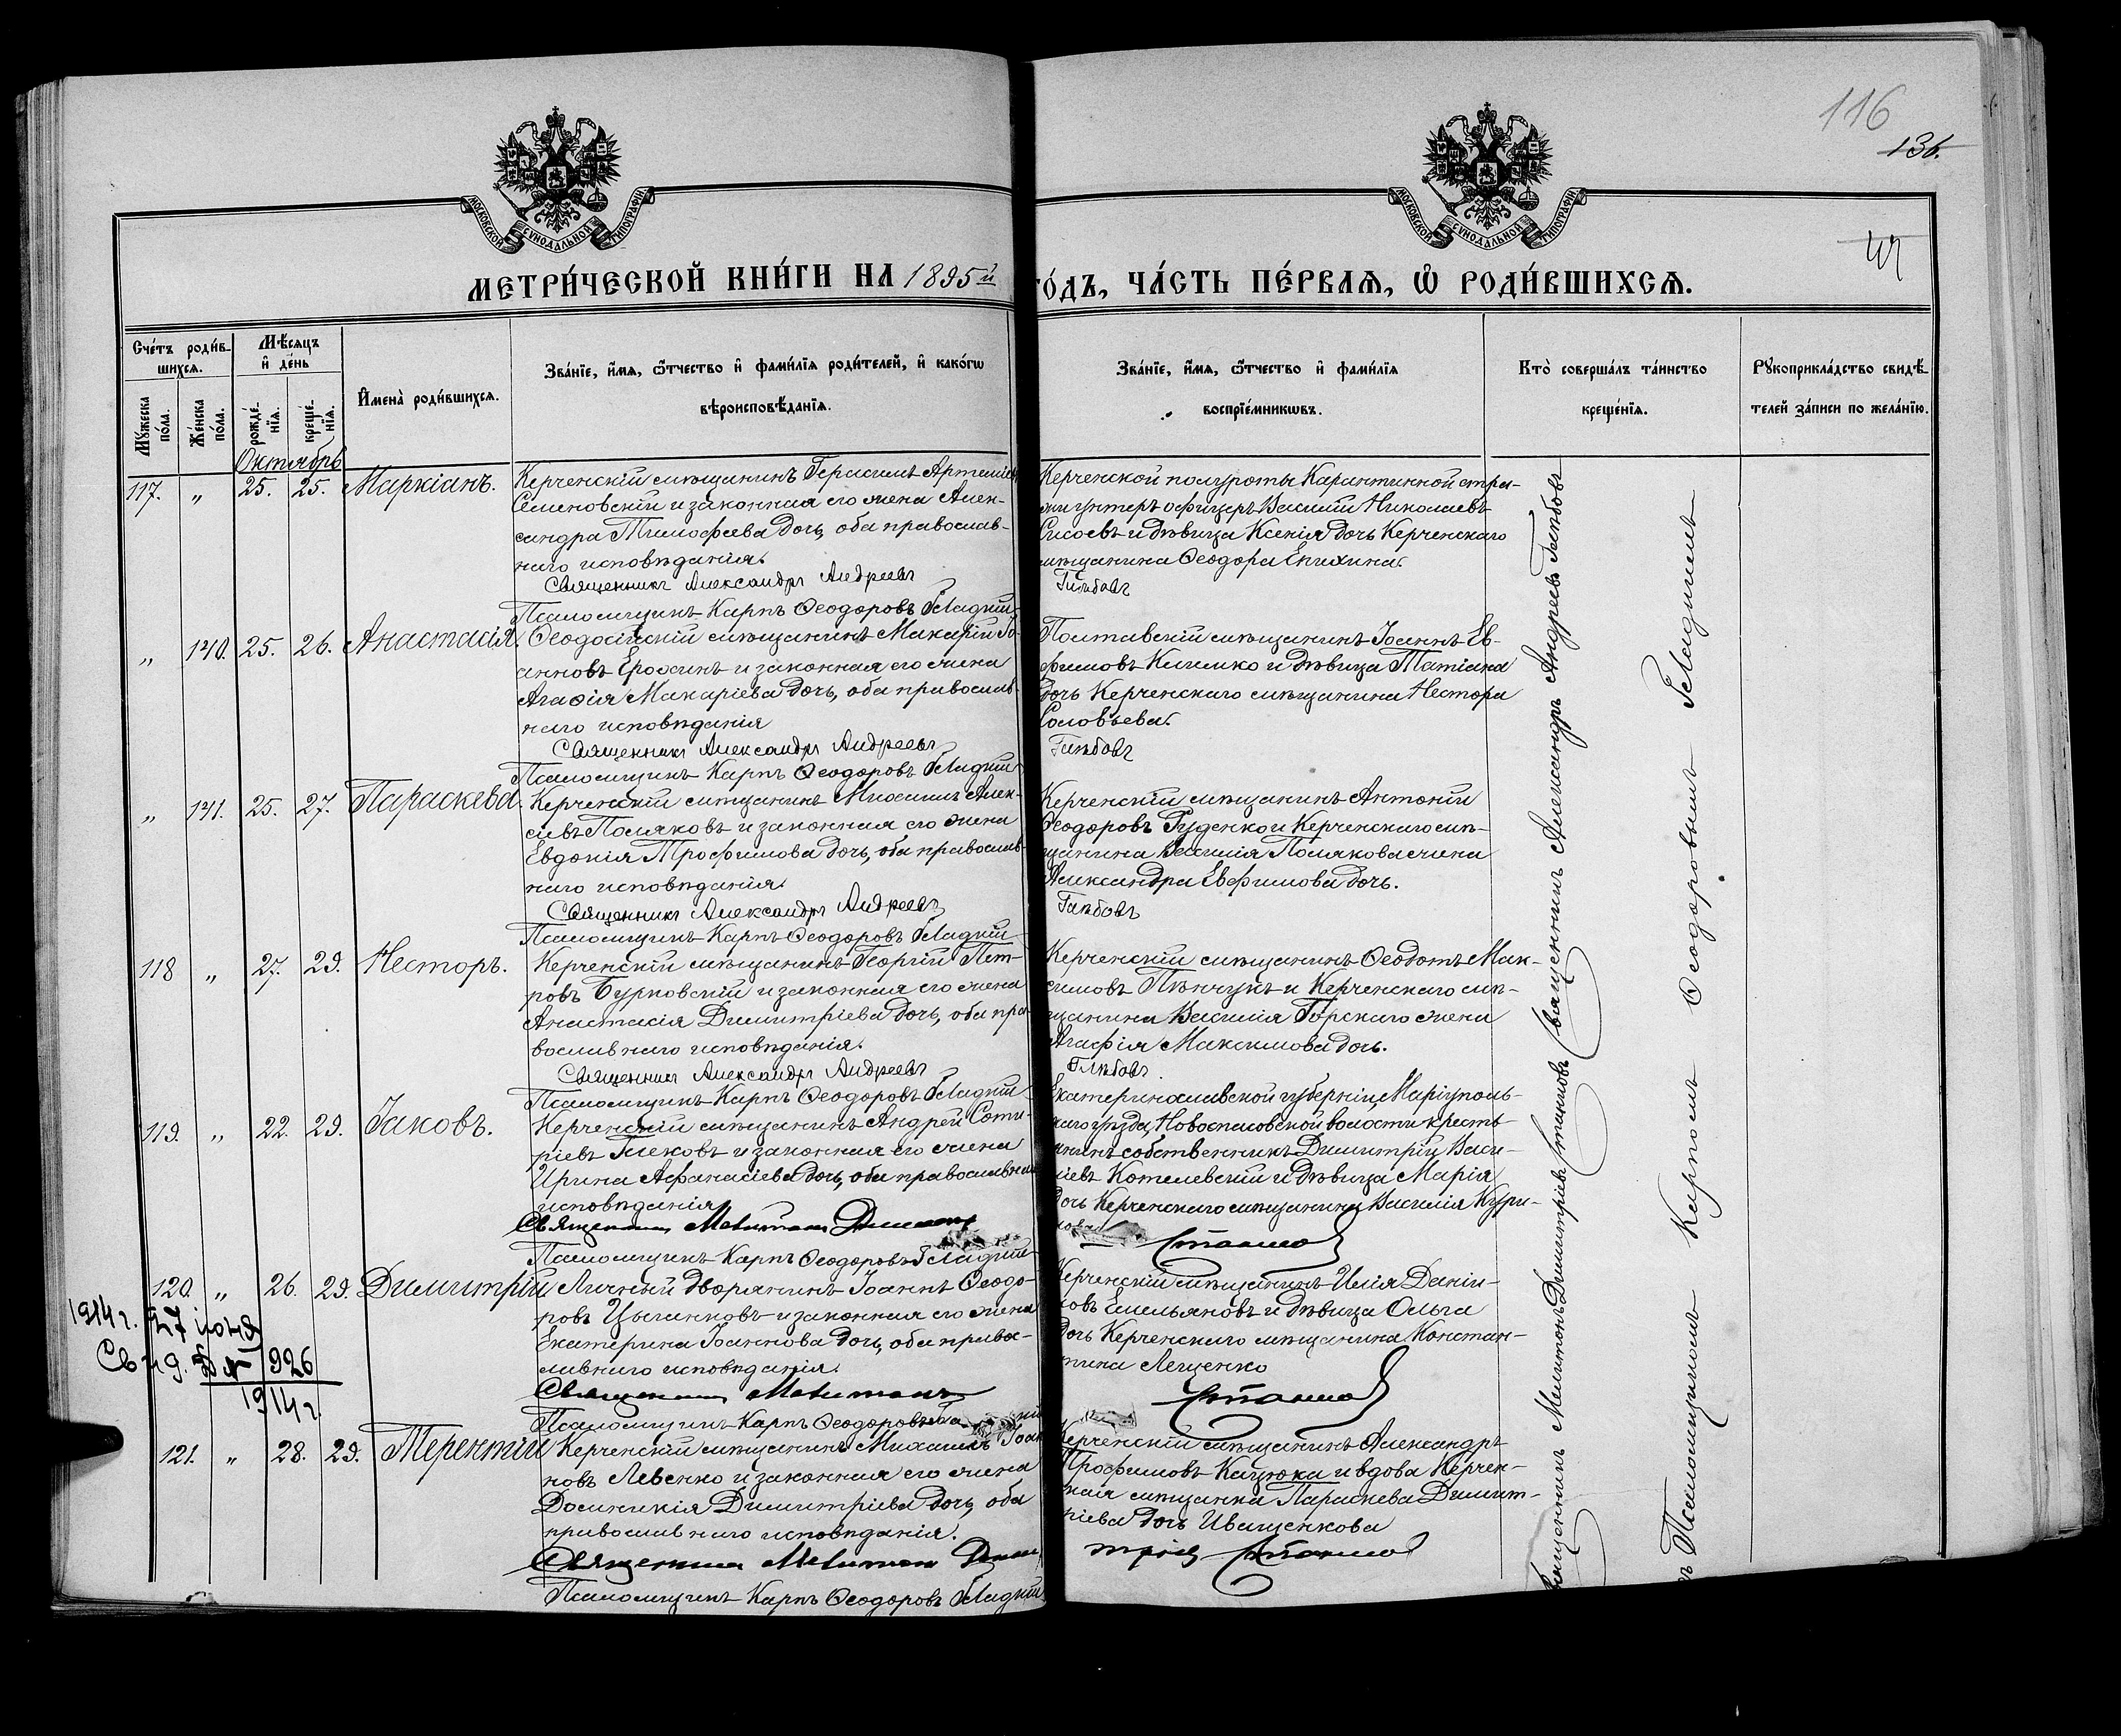 116
136.
МОСКОВСКОЙ СѴНОДАЛЬНОЙ ТИПОГРАФІИ
МОСКОВСКОЙ СѴНОДАЛЬНОЙ ТИПОГРАФІИ
МЕТРИ́ЧЕСКОЙ КНИ́ГИ НА 1895й
ГО́ДЪ, ЧА́СТЬ ПЕ́РВАѦ, Ѽ РОДИ́ВШИХСѦ.
Сче́тъ роди́в-
шихсѧ.
Мꙋ́жеска по́ла.
Же́нска по́ла.
Мѣ́сѧцъ и҆ де́нь
рожде́-нїѧ.
креще́-нїѧ.
И҆мена̀ роди́вшихсѧ.
Зва́нїе, и҆́мѧ, ѻ҆́тчество и҆ фами́лїѧ роди́телей, и҆ како́гѡ
вѣроисповѣ́данїѧ.
Зва́нїе, и҆́мѧ, ѻ҆́тчество и҆ фами́лїѧ
воспрїе́мникѡвъ.
Кто̀ соверша́лъ та́инство
креще́нїѧ.
Рꙋкоприкла́дство свидѣ́-
телей за́писи по жела́нїю.
Октябрь
117. " 25. 25. Маркіанъ.
Керченскій мѣщанинъ Герасимъ Артеміевъ
Семеновскій и законная его жена Алек-
сандра Тимофеева дочь, оба православ-
наго исповѣданія.
Священникъ Александръ Андреевъ
Псаломщикъ Карпъ Ѳеодоровъ Гладкій
Керченской полуроты Карантинной стра-
жи унтеръ офицеръ Василій Николаевъ
Сысоевъ и дѣвица Ксенія дочь Керченскаго
мѣщанина Ѳеодора Епихина.
Глѣбовъ
" 140. 25. 26. Анастасія.
Ѳеодосійскій мѣщанинъ Макарій Іо-
анновъ Ерохинъ и законная его жена
Агаѳія Макаріева дочь, оба православ-
наго исповѣданія
Священникъ Александръ Андреевъ
Псаломщикъ Карпъ Ѳеодоровъ Гладкій
Полтавскій мѣщанинъ Іоаннъ Ев-
фимовъ Климко и дѣвица Татіана
дочь Керченскаго мѣщанина Нестора
Соловьева.
Глѣбовъ
" 141. 25. 27. Параскева.
Керченскій мѣщанинъ Михаилъ Алек-
сѣевъ Поляковъ и законная его жена
Евдокія Трофимова дочь, оба православ-
наго исповѣданія.
Священникъ Александръ Андреевъ
Псаломщикъ Карпъ Ѳеодоровъ Гладкій
Керченскій мѣщанинъ Антоній
Ѳеодоровъ Руденко и Керченскаго мѣ-
щанина Василія Полякова жена
Александра Евфимова дочь.
Глѣбовъ
118 " 27. 29. Несторъ.
Керченскій мѣщанинъ Георгій Пет-
ровъ Бурковскій и законная его жена
Анастасія Димитріева дочь, оба пра-
вославнаго исповѣданія.
Священникъ Александръ Андреевъ
Псаломщикъ Карпъ Ѳеодоровъ Гладкій
Керченскій мѣщанинъ Ѳеодотъ Мак-
симовъ Пѣнчукъ и Керченскаго мѣ-
щанина Василія Горскаго жена
Агафія Максимова дочь.
Глѣбовъ
119. " 22. 29. Іаковъ.
Керченскій мѣщанинъ Андрей Соти-
ріевъ Глековъ и законная его жена
Ирина Афанасіева дочь, оба православнаго
исповѣданія
Священникъ Мелитонъ
Псаломщикъ Карпъ Ѳеодоровъ Гладкій
Екатеринославской губерніи, Маріуполь-
скаго уѣзда, Новоспасовской волости кресть-
янинъ собственникъ Димитрій Васи-
ліевъ Котелевскій и дѣвица Марія
дочь Керченскаго мѣщанина Василія Кури-
Станково
120. " 26. 29. Димитрій
Личный дворянинъ Іоаннъ Ѳеодо-
ровъ Цыганковъ и законная его жена
Екатерина Іоаннова дочь, оба право-
славнаго исповѣданія.
Священникъ Мелитонъ
Псаломщикъ Карпъ Ѳеодоровъ
Керченскій мѣщанинъ Илія Даніи-
ловъ Емельяновъ и дѣвица Ольга
дочь Керченскаго мѣщанина Констан-
тина Лещенко
1914 г. 27 іюня
Свид. № 926
1914 г.
121. " 28. 29. Терентій
Керченскій мѣщанинъ Михаилъ Іоан-
новъ Левенко и законная его жена
Домникія Димитріева дочь, оба
православнаго исповѣданія.
Священникъ Мелитонъ
Псаломщикъ Карпъ Ѳеодоровъ Гладкій
Керченскій мѣщанинъ Александръ
Трофимовъ Кацюка и вдова Керчен-
ская мѣщанка Параскева Димит-
ріева дочь Иващенкова
Священникъ Мелитонъ Димитріевъ Станковъ Священникъ Александръ Андреевъ Глѣбовъ
съ Псаломщикомъ Карпомъ Ѳеодоровымъ Гладкимъ